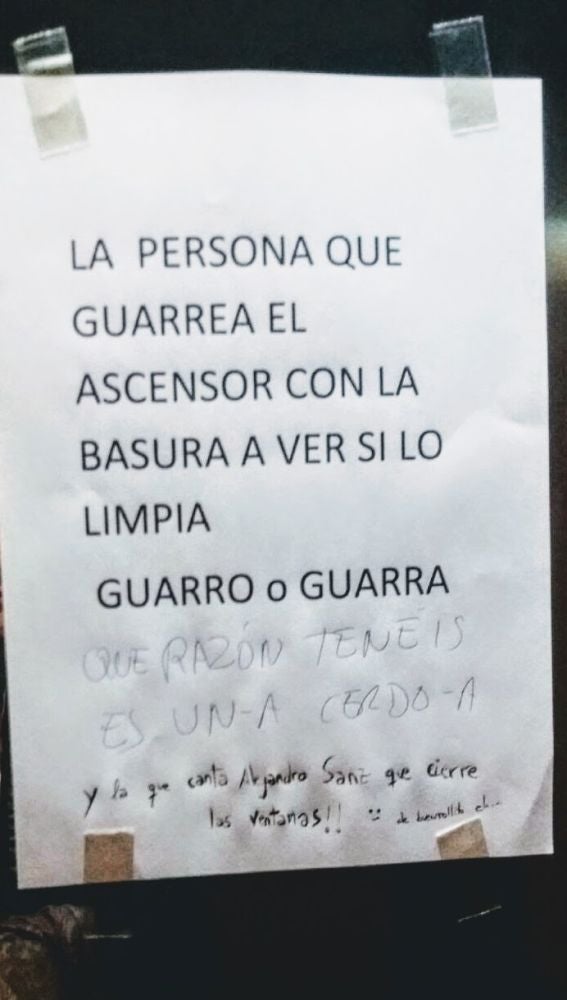 LA PERSONA QUE
GUARREA EL
ASCENSOR CON LA
BASURA A VER SI LO
LIMPIA
GUARRO o GUARRA
QUE RAZÓN TENÉIS
ES UN-A CERDO-A
y la que canta Alejandro Sanz que cierre
las ventanas!! de buenrollito eh...